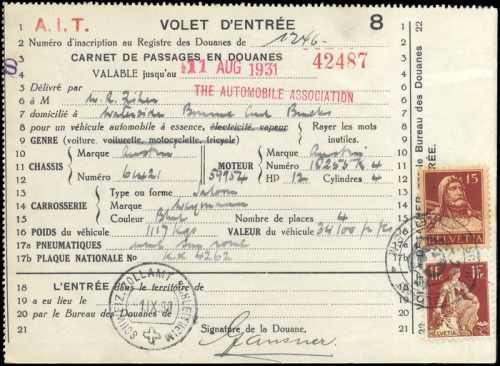 1 A.I.T. VOLET D'ENTRÉE 8
2 Numéro d'inscription au Registre des Douanes de 1246- 2
3 CARNET DE PASSAGES EN DOUANES 42487 3
4 VALABLE jusqu'au 11 AUG 1931 4
5 Délivré par THE AUTOMOBILE ASSOCIATION 5
6 à M W. R. 6
7 domicilié à 7
8 pour un véhicule automobile à essence, électricité, vapeur Rayer les mots 8
9 GENRE (voiture, voiturette, motocyclette, tricycle) inutiles. 9
10 Marque Austin 10 Marque Austin 10
11 CHASSIS MOTEUR 11
12 Numéro 61421 59954 Numéro 16255 K 4 11
HP 12 Cylindres 4 12
13 Type ou forme Saloon 13
14 CARROSSERIE Marque Weymann 14
15 Couleur Blue Nombre de places 4 15
16 POIDS du véhicule 1117 Kgs VALEUR du véhicule 34100 fr fcs 16
17a PNEUMATIQUES 17a
17b PLAQUE NATIONALE No 4262 17b
18 L'ENTRÉE dans le territoire de 18
19 a eu lieu le 19
20 par le Bureau des Douanes de 20
21 Signature de la Douane, 21
Gansner
SCHWEIZ. ZOLLAMT SCHLEITHEIM
1 IX 30
22
le Bureau des Douanes
15
HELVETIA
1 Fr.
HELVETIA